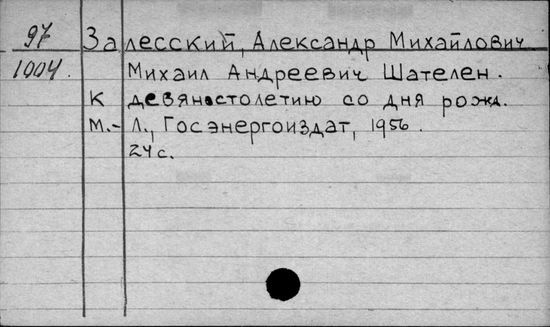 97 Залесский, Александр Михайлович
1004. Михаил Андреевич Шателен.
К девяностолетию со дня рожд.
М.-Л., Госэнергоиздат, 1956.
24 с.